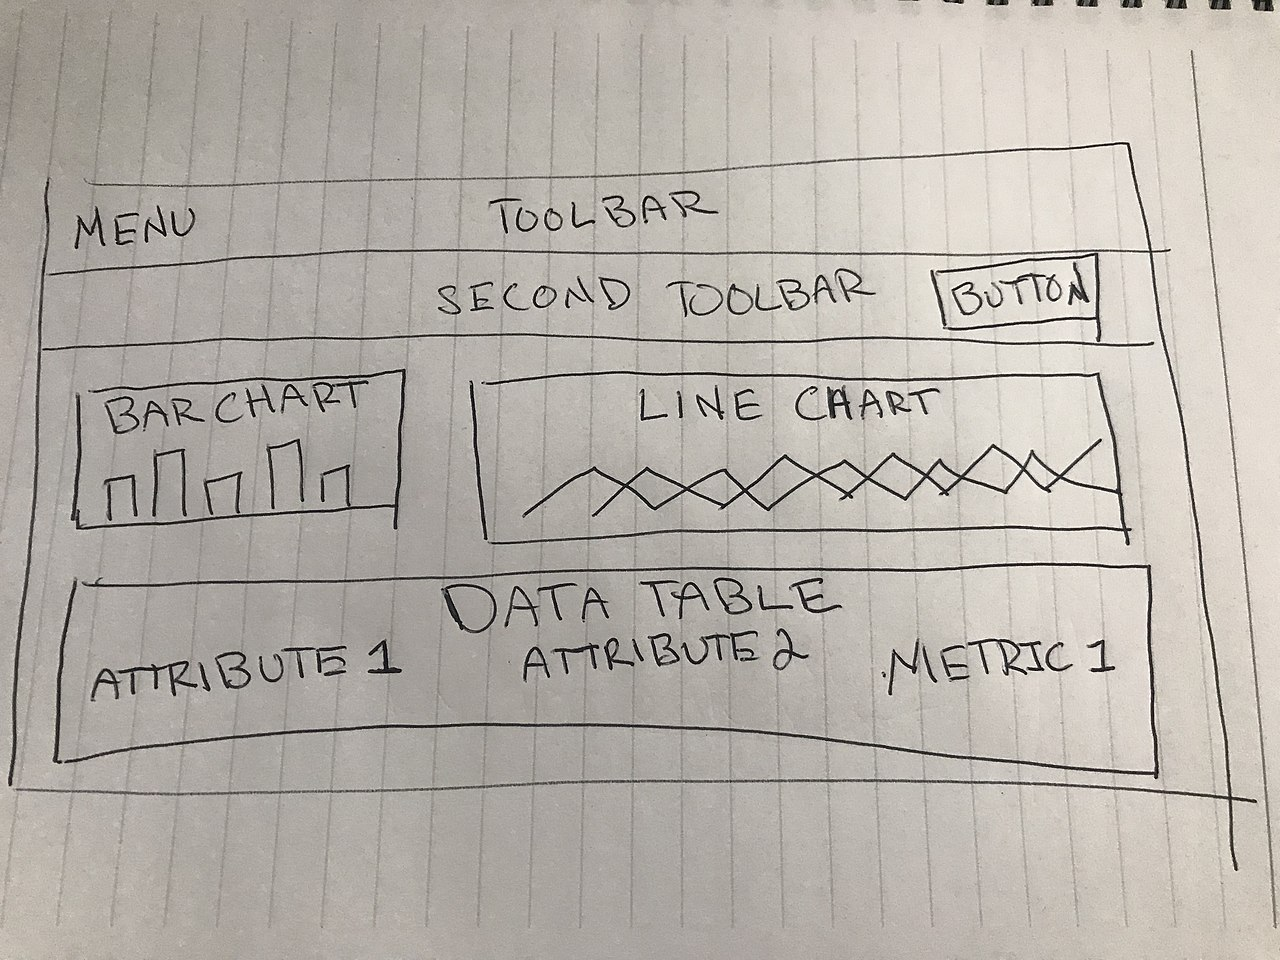 MENU TOOLBAR
SECOND TOOLBAR BUTTON
BAR CHART
LINE CHART
DATA TABLE
ATTRIBUTE 1 ATTRIBUTE 2 METRIC 1